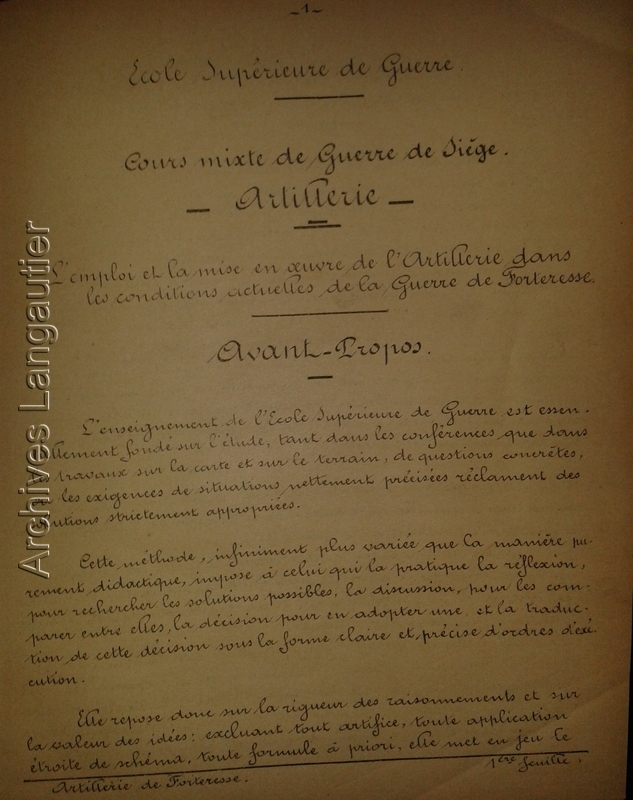 -1-
École Supérieure de Guerre.
Cours mixte de Guerre de Siége.
- Artillerie -
L'emploi et la mise en œuvre de l'Artillerie dans
les conditions actuelles de la Guerre de Forteresse.
Avant-Propos.
L'enseignement de l'Ecole Supérieure de Guerre est essen-
tiellement fondé sur l'étude, tant dans les conférences que dans
travaux sur la carte et sur le terrain, de questions concrètes,
les exigences de situations nettement précisées réclament des
solutions strictement appropriées.
Cette méthode, infiniment plus variée que la manière pu-
rement didactique, impose à celui qui la pratique la réflexion,
pour rechercher les solutions possibles, la discussion, pour les com-
parer entre elles, la décision pour en adopter une et la traduc-
tion de cette décision sous la forme claire et précise d'ordres d'exé-
cution.
Elle repose donc sur la rigueur des raisonnements et sur
la valeur des idées: excluant tout artifice, toute application
étroite de schéma, toute formule à priori, elle met en jeu le
Artillerie de Forteresse.
1ère feuille.
Archives Langautier